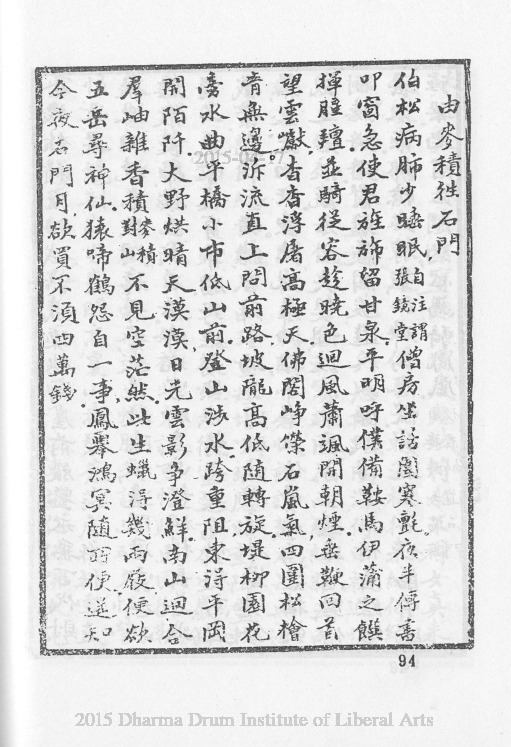 由麥積往石門
伯松病肺少睡眠自注謂張鏡堂僧房坐語團寒氈夜半傳書
叩窗急使君旌旆留甘泉平明呼僕備鞍馬伊蒲之饌
揮腥羶並騎從容趁曉色迴風蕭颯開朝煙垂鞭回首
望雲巘杳杳浮屠高極天佛閣崢嶸石嵐氣四圍松檜
音無邊泝流直上問前路坡隴高低隨轉旋堤柳園花
麥水曲平橋小市低山前登山涉水跨重阻東得平岡
開陌阡大野烘晴天漠漠日光雲影爭澄鮮南山迴合
羣岫雜香積對麥積山不見空茫然此生蠟得幾兩屐便欲
五岳尋神仙猿啼鶴怨自一事鳳舉鴻冥隨所便遥知
今夜石門月欲買不須四萬錢
94
2015 Dharma Drum Institute of Liberal Arts